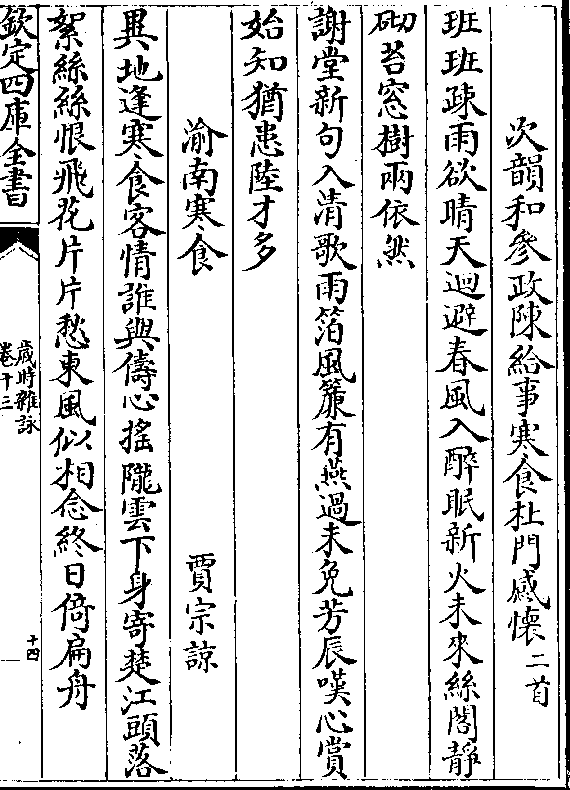 次韻和參政陳給事寒食杜門感懷二首
班班疎雨欲晴天迴避春風入醉眠新火未來絲閣靜
砌苔窓樹兩依然
謝堂新句入清歌雨箔風簾有燕過未免芳辰嘆心賞
始知猶患陸才多
渝南寒食　賈宗諒
異地逢寒食客情誰與儔心搖隴雲下身寄楚江頭落
絮絲絲恨飛花片片愁東風似相念終日倚扁舟
欽定四庫全書
歲時雜詠
卷十三
十四